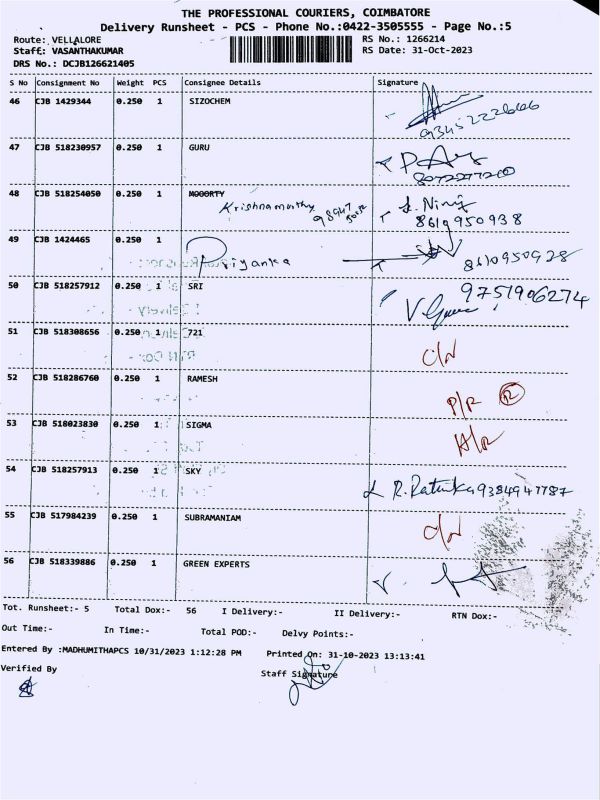 THE PROFESSIONAL COURIERS, COIMBATORE
Delivery Runsheet - PCS - Phone No.:0422-3505555 - Page No.:5
Route: VELLALORE RS No.: 1266214
Staff: VASANTHAKUMAR RS Date: 31-Oct-2023
DRS No.: DCJB126621405
S No Consignment No Weight PCS Consignee Details Signature
46 CJB 1429344 0.250 1 SIZOCHEM
47 CJB 518230957 0.250 1 GURU
48 CJB 518254050 0.250 1 MOOORTY
Krishnamurthy
8619950938
49 CJB 1424465 0.250 1
Priyanka 8610950928
50 CJB 518257912 0.250 1 SRI 9751906274
51 CJB 518308656 0.250 1 721
52 CJB 518286760 0.250 1 RAMESH
P/R R
53 CJB 518023830 0.250 1 SIGMA
54 CJB 518257913 0.250 1 SKY
9384947787
55 CJB 517984239 0.250 1 SUBRAMANIAM
56 CJB 518339886 0.250 1 GREEN EXPERTS
Tot. Runsheet:- 5 Total Dox:- 56 I Delivery:- II Delivery:- RTN Dox:-
Out Time:- In Time:- Total POD:- Delvy Points:-
Entered By :MADHUMITHAPCS 10/31/2023 1:12:28 PM Printed On: 31-10-2023 13:13:41
Verified By Staff Signature